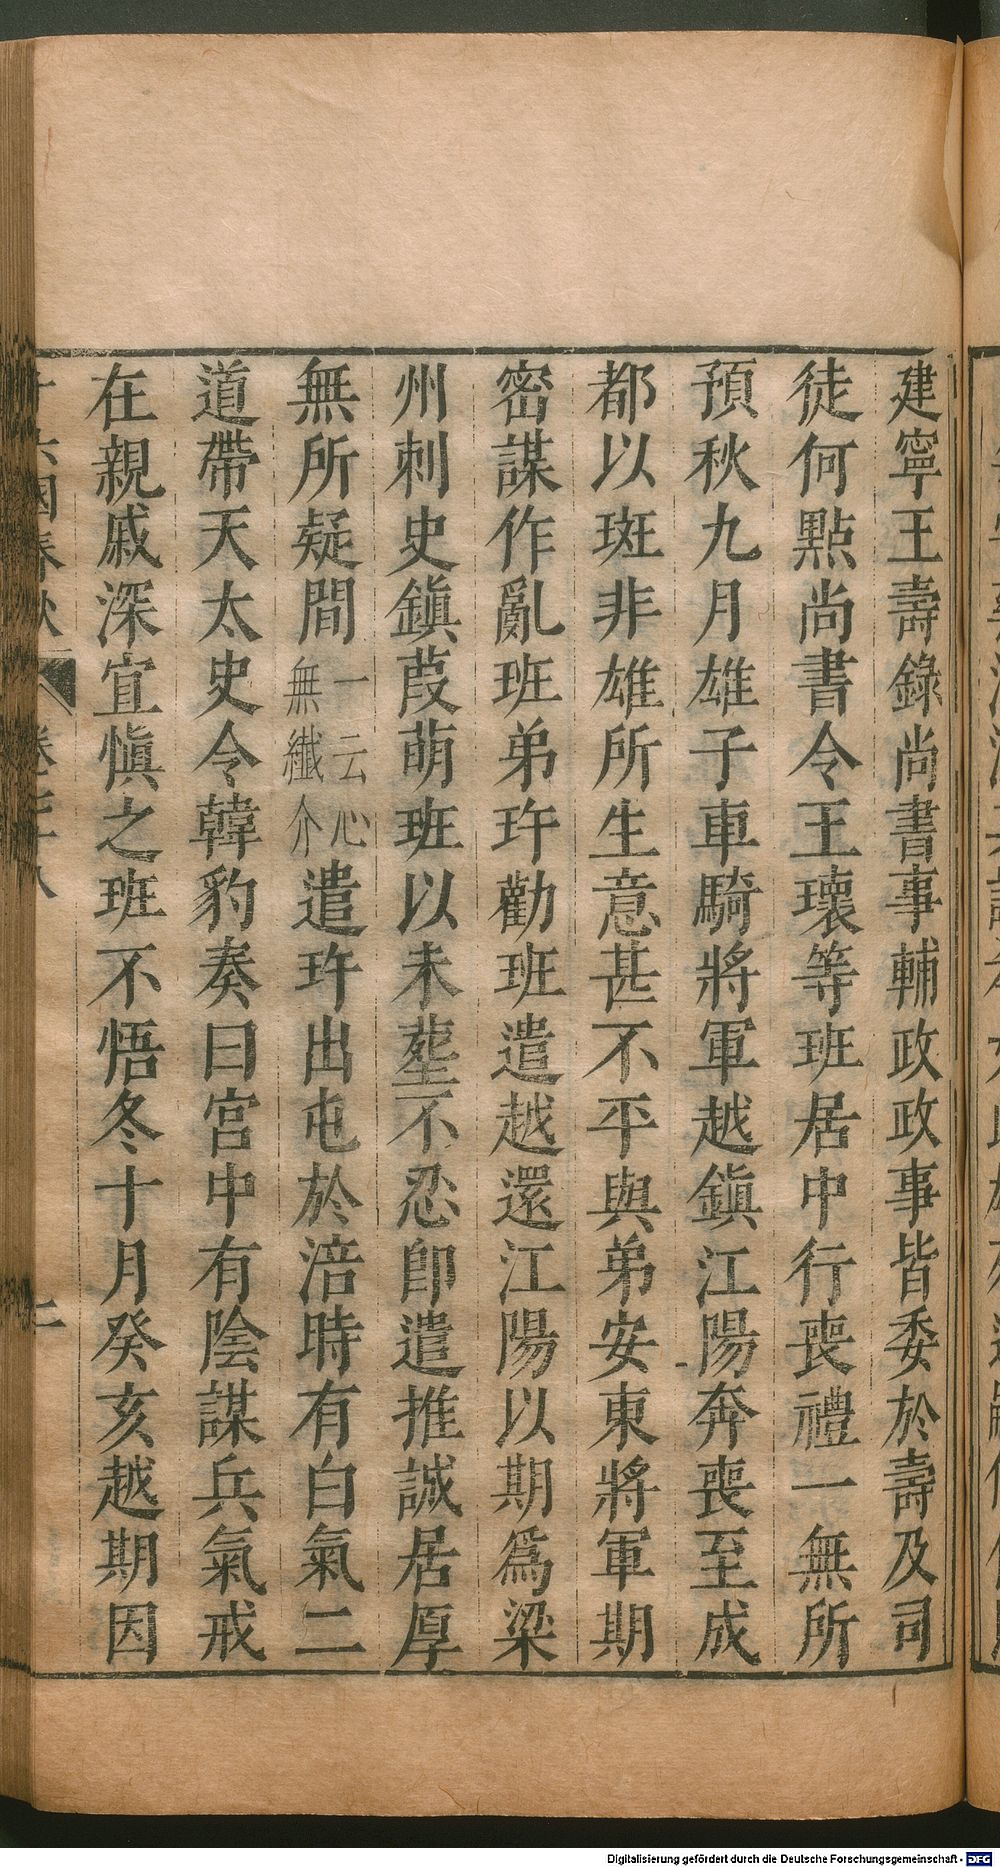 建寧王壽錄尚書事輔政政事皆委於壽及司
徒何點尚書令王瓌等班居中行喪禮一無所
預秋九月雄子車騎將軍越鎮江陽奔喪至成
都以班非雄所生意甚不平與弟安東將軍期
密謀作亂班弟玝勸班遣越還江陽以期爲梁
州刺史鎮葭萌班以未葬不忍卽遣推誠居厚
無所疑間一云心無纖介遣玝出屯於涪時有白氣二
道帶天太史令韓豹奏曰宮中有陰謀兵氣戒
在親戚深宜慎之班不悟冬十月癸亥越期因
六國春秋 卷七十八 二
Digitalisierung gefördert durch die Deutsche Forschungsgemeinschaft - DFG